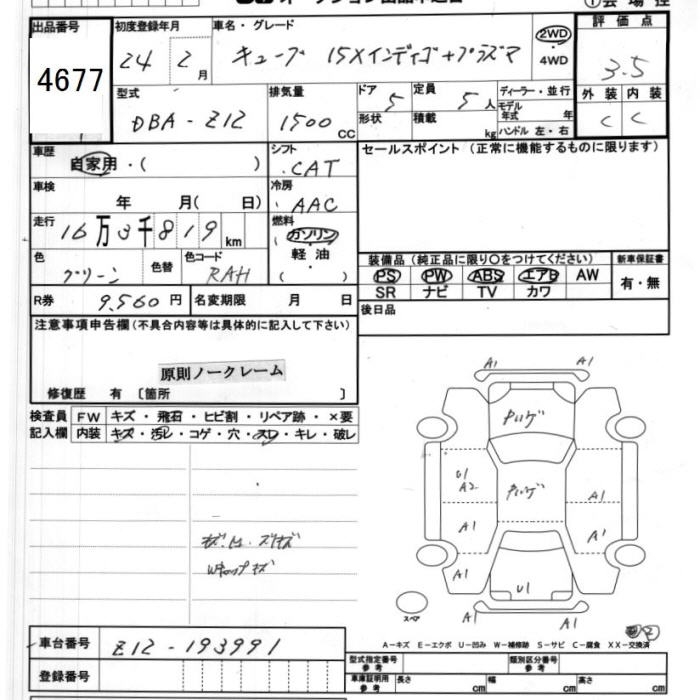 出品番号 初度登録年月 車名・グレード 評価点
4677 24年 2月 キューブ 15Xインディゴ+プラズマ 2WD ・ 4WD 3.5
型式 排気量 ドア形状 5 定員 5人 ディーラー・並行 外装 内装
DBA-Z12 1500cc 積載 kg モデル年式 年 C C
ハンドル 左・右
車歴 シフト セールスポイント (正常に機能するものに限ります)
自家用・( ) CAT
車検 冷房
年 月( 日) AAC
走行 燃料
16万3千819km ガソリン
軽油
( )
色 色替 色コード 装備品(純正品に限り○をつけてください) 新車保証書
グリーン RAH PS PW ABS エアB AW 有・無
SR ナビ TV カワ
R券 9,560円 名変期限 月 日 後日品
注意事項申告欄(不具合内容等は具体的に記入して下さい)
原則ノークレーム
修復歴 有 〔箇所 〕
検査員 FW キズ・飛石・ヒビ割・リペア跡・×要
記入欄 内装 キズ・汚レ・コゲ・穴・スレ・キレ・破レ
A1 A1
U1
A2 A1
A1 A1
A1 U1
A1 A1
スペア
A−キズ E−エクボ U−凹み W−補修跡 S−サビ C−腐食 XX−交換済
車台番号 Z12-193991
登録番号
型式指定番号 参考 類別区分番号 参考
車庫証明用 参考 長さ cm 幅 cm 高さ cm